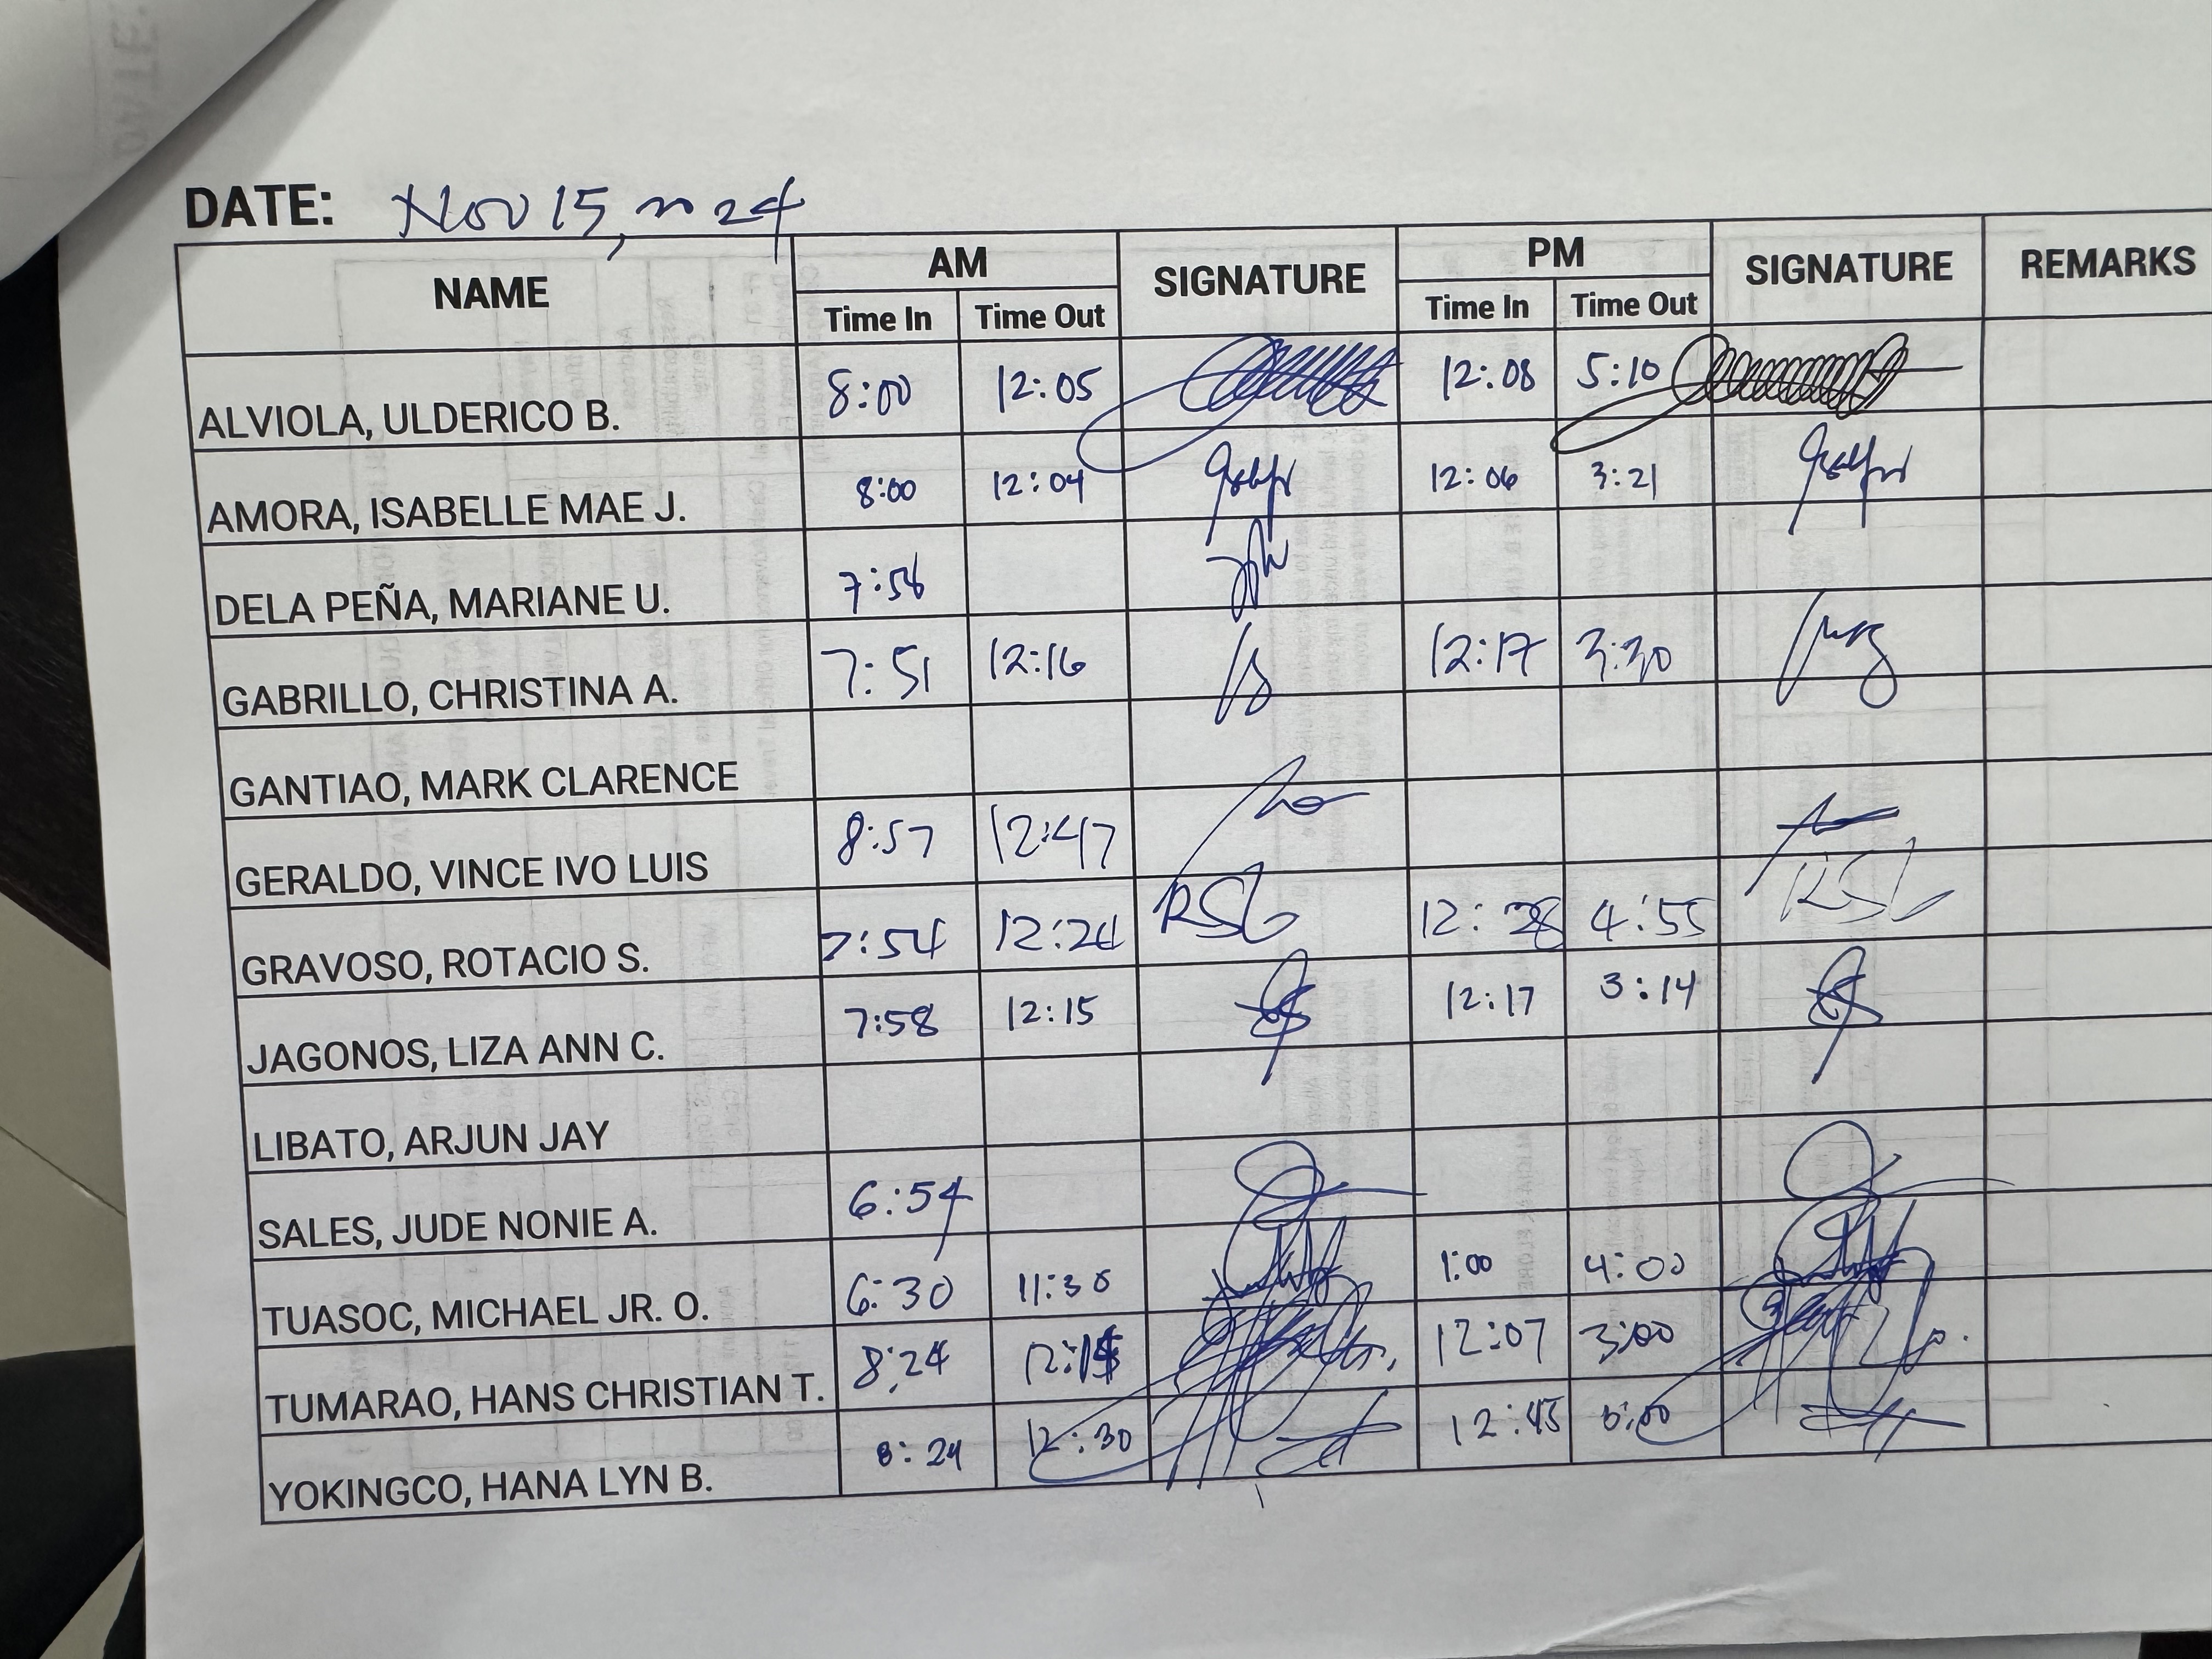 DATE: Nov 15, 2024
NAME AM SIGNATURE PM SIGNATURE REMARKS
Time In Time Out Time In Time Out
ALVIOLA, ULDERICO B. 8:00 12:05 12:08 5:10
AMORA, ISABELLE MAE J. 8:00 12:04 12:06 3:21
DELA PEÑA, MARIANE U. 7:58
GABRILLO, CHRISTINA A. 7:51 12:16 12:17 3:30
GANTIAO, MARK CLARENCE
GERALDO, VINCE IVO LUIS 8:57 12:47
GRAVOSO, ROTACIO S. 7:54 12:24 RSG 12:28 4:55 RSG
JAGONOS, LIZA ANN C. 7:58 12:15 12:17 3:14
LIBATO, ARJUN JAY
SALES, JUDE NONIE A. 6:54
TUASOC, MICHAEL JR. O. 6:30 11:30 1:00 4:00
TUMARAO, HANS CHRISTIAN T. 8:24 12:07 3:00
YOKINGCO, HANA LYN B. 8:24 12:30 12:45